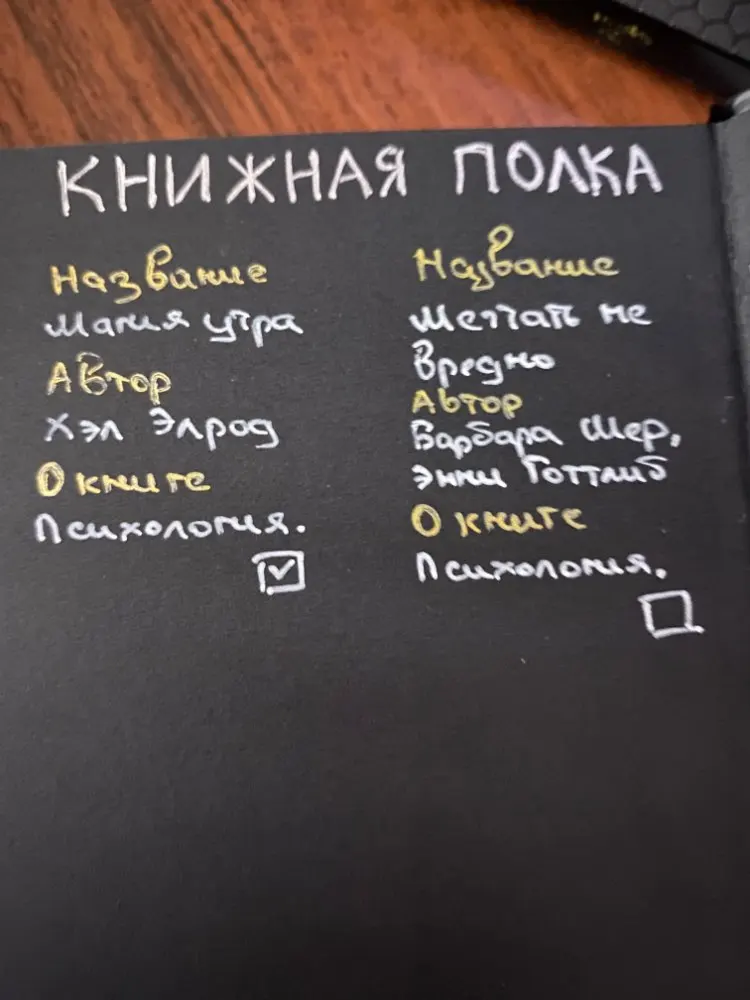 КНИЖНАЯ ПОЛКА
Название
Магия утра
Автор
Хэл Элрод
О книге
Психология.
Название
Мечтать не
вредно
Автор
Барбара Шер,
Энни Готтлиб
О книге
Психология.